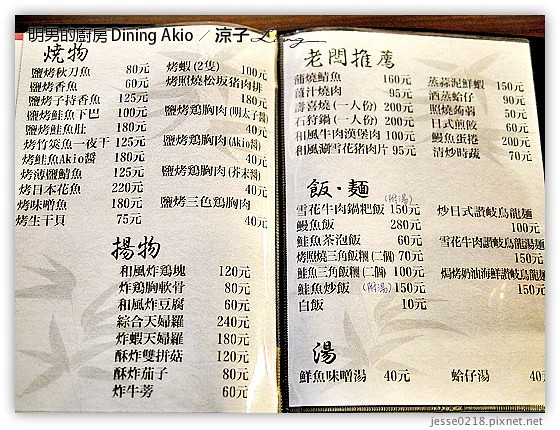 明男的廚房 Dining Akio ／涼子
燒物
鹽烤秋刀魚 80元
鹽烤香魚 60元
鹽烤子持香魚 125元
鹽烤鮭魚下巴 100元
鹽烤鮭魚肚 180元
烤竹筴魚一夜干 125元
烤鮭魚Akio醬 180元
烤薄鹽鯖魚 125元
烤日本花魚 220元
烤味噌魚 180元
烤生干貝 75元
烤蝦(2隻) 100元
烤照燒松坂豬肉排
180元
鹽烤鶏胸肉(明太子醬)
40元
鹽烤鶏胸肉(Akio醬)
40元
鹽烤鶏胸肉(芥末醬)
40元
鹽烤三色鶏胸肉
40元
揚物
和風炸鶏塊 120元
炸鶏胸軟骨 80元
和風炸豆腐 60元
綜合天婦羅 240元
炸蝦天婦羅 180元
酥炸雙拼菇 120元
酥炸茄子 80元
炸牛蒡 60元
老闆推薦
蒲燒鯖魚 160元
薑汁燒肉 95元
壽喜燒(一人份) 200元
石狩鍋(一人份) 200元
和風牛肉漢堡肉 100元
和風涮雪花豬肉片 95元
蒸蒜泥鮮蝦 150元
酒蒸蛤仔 90元
照燒蒟蒻 50元
日式煎餃 60元
鰻魚蛋捲 200元
清炒時蔬 70元
飯·麵
雪花牛肉鍋粑飯 (附湯) 150元
鰻魚飯 280元
鮭魚茶泡飯 60元
烤照燒三角飯糰(二個) 70元
鮭魚三角飯糰(二個) 100元
鮭魚炒飯 (附湯) 150元
白飯 10元
炒日式讚岐烏龍麵
100元
雪花牛肉讚岐烏龍湯麵
150元
焗烤奶油海鮮讚岐烏龍麵
150元
湯
鮮魚味噌湯 40元
蛤仔湯 40元
jesse0218.pixnet.net